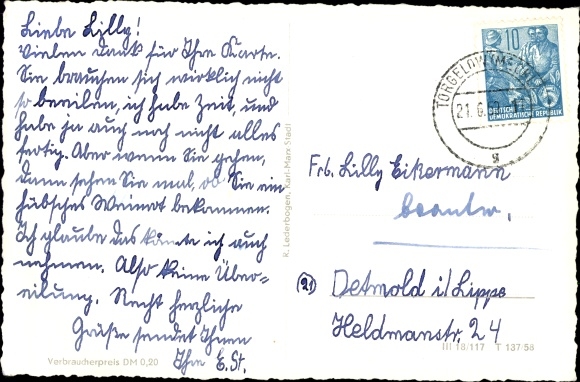 Liebe Lilly!
Vielen Dank für Ihre Karte.
Sie brauchen sich wirklich nicht
so beeilen, ich habe Zeit, und
habe ja auch noch nicht alles
fertig. Aber wenn Sie gehen,
dann sehen Sie mal, ob Sie ein
hübsches Weimar bekommen.
Ich glaube das könnte ich auch
nehmen. Also keine Über-
eilung. Recht herzliche
Grüße sendet Ihnen
Ihre E. St.
Verbraucherpreis DM 0,20
R. Lederbogen, Karl-Marx-Stadt
10
DEUTSCHE
DEMOKRATISCHE REPUBLIK
TORGELOW
21. 6.
g
Frl. Lilly Eikermann
beantw.
(21) Detmold i/Lippe
Heldmanstr. 24
III 18/117 T 137 58